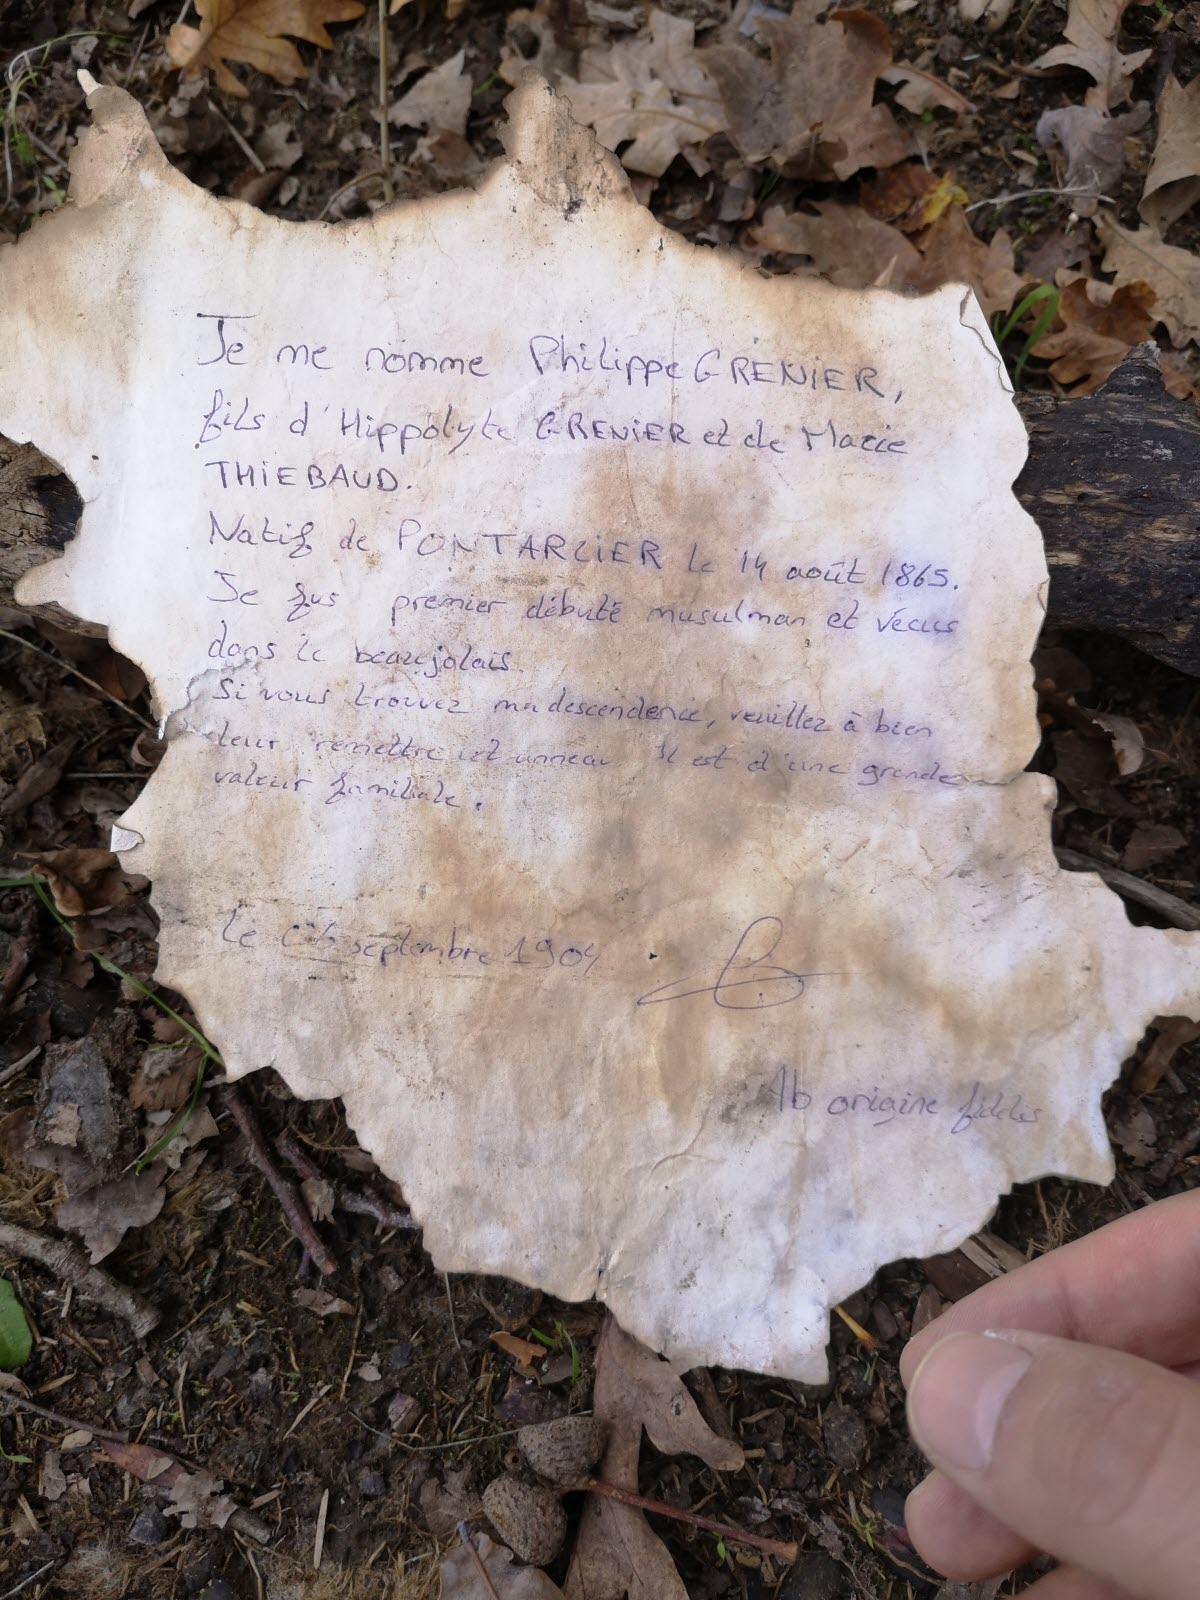 Je me nomme Philippe GRENIER,
fils d'Hippolyte GRENIER et de Marie
THIEBAUD.
Natif de PONTARLIER le 14 août 1865.
Je fus premier débuté musulman et vécus
dans le beaujolais.
Si vous trouvez ma descendence, veuillez à bien
leur remettre cet anneau. Il est d'une grande
valeur familiale.
le septembre 1904
Ab origine fidelis